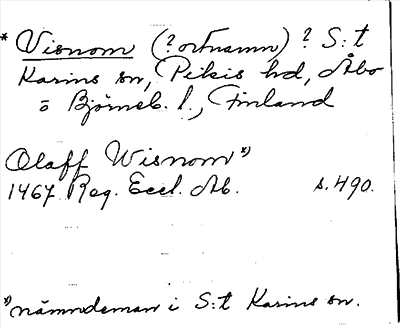 * Visnom (? ortnamn) ? S:t
Karins sn, Pikis hd, Åbo
o Björneb. l., Finland
Olaff Wisnom x)
1467 Reg. Eccl. Ab. s. 490.
x) nämndeman i S:t Karins sn.